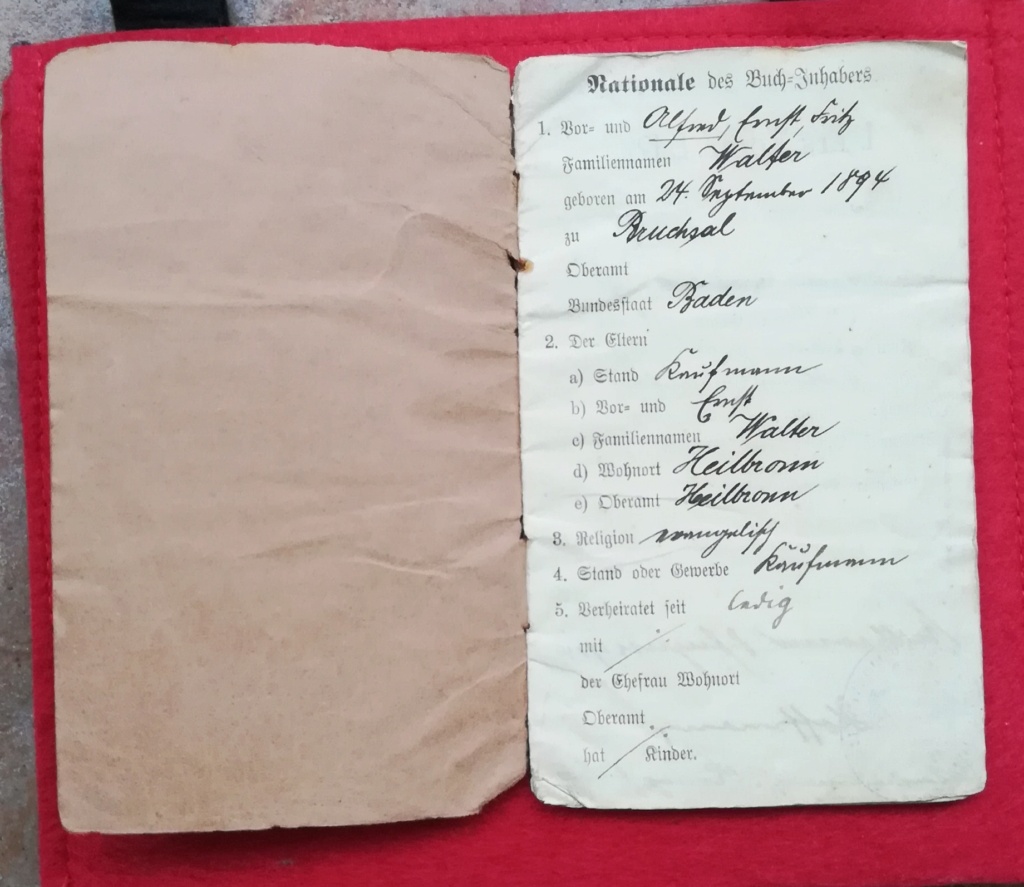 Nationale des Buch-Inhabers
1. Vor- und Alfred, Ernst, Fritz
Familiennamen Walter
geboren am 24. September 1894
zu Bruchsal
Oberamt
Bundesstaat Baden
2. Der Eltern
a) Stand Kaufmann
b) Vor- und Ernst
c) Familiennamen Walter
d) Wohnort Heilbronn
e) Oberamt Heilbronn
3. Religion evangelisch
4. Stand oder Gewerbe Kaufmann
5. Verheiratet seit ledig
mit
der Ehefrau Wohnort
Oberamt
hat Kinder.